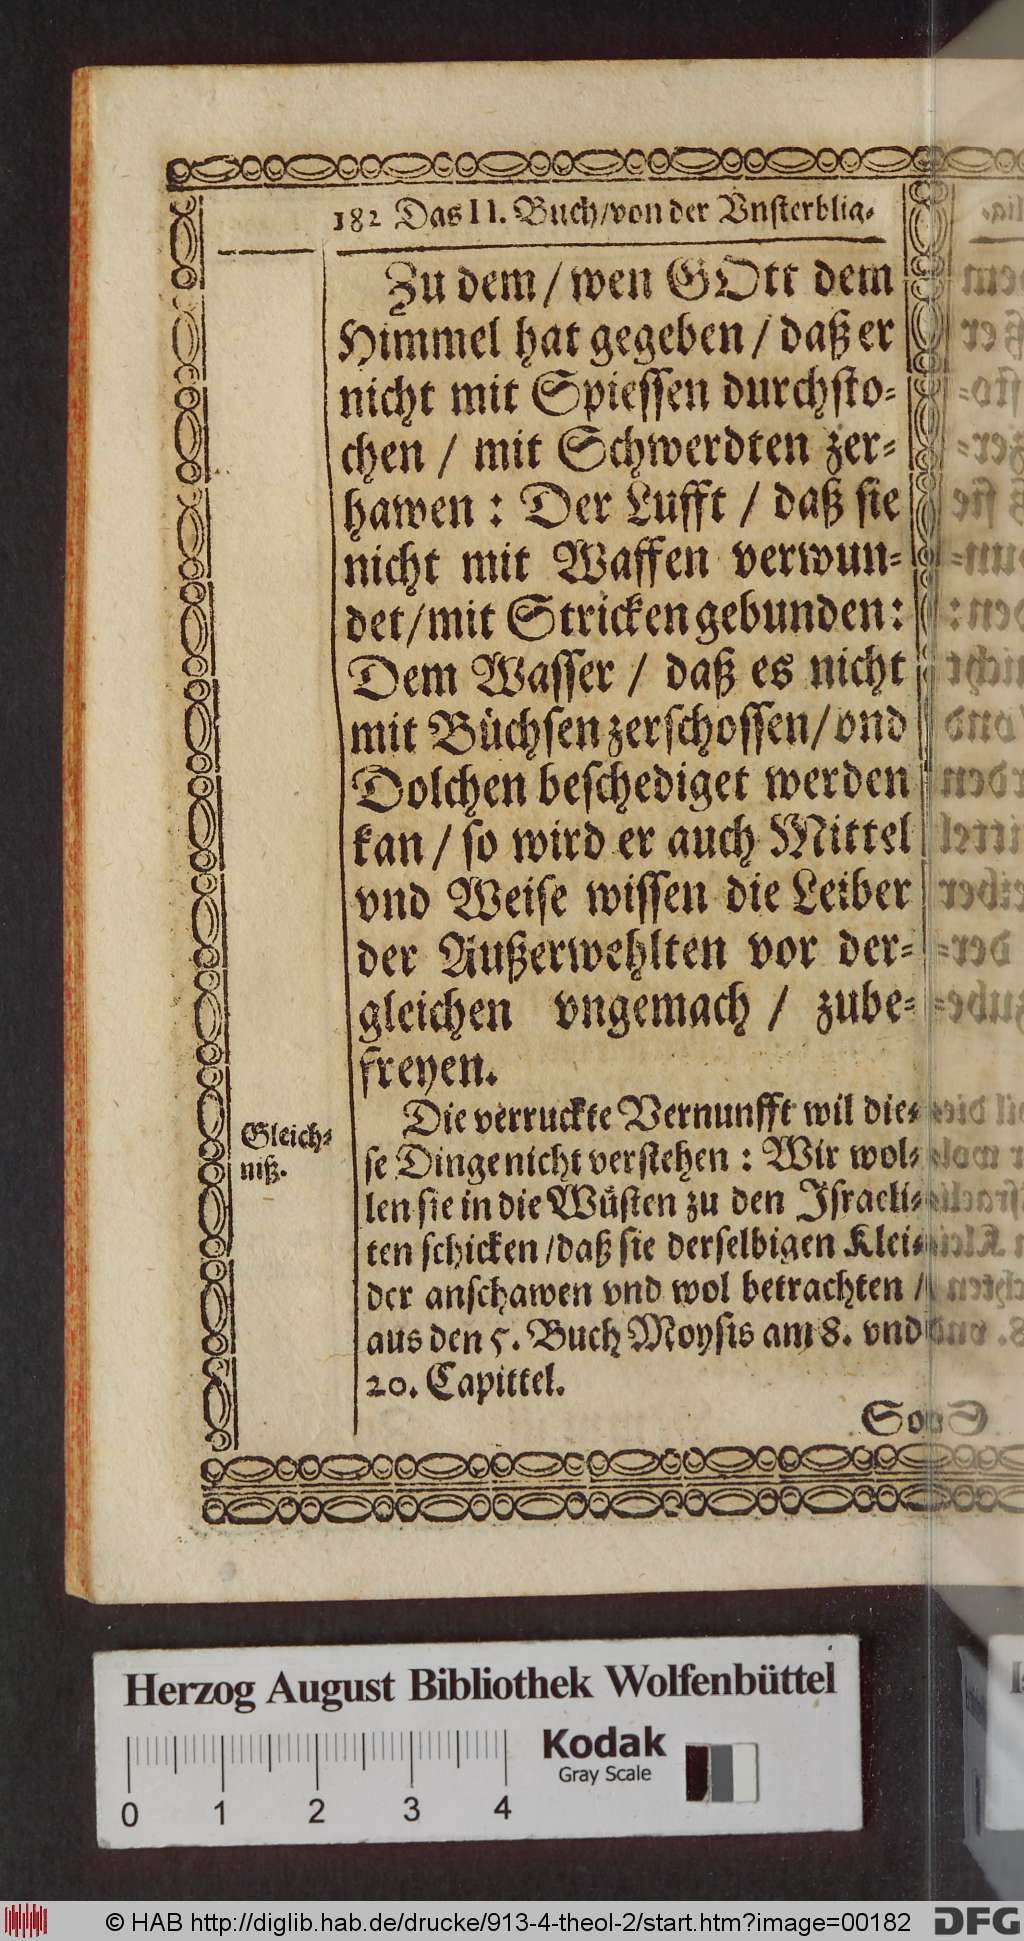 182 Das II. Buch/von der Vnsterblig-
Zu dem / wen GOtt dem
Himmel hat gegeben / daß er
nicht mit Spiessen durchsto-
chen / mit Schwerdten zer-
hawen : Der Lufft / daß sie
nicht mit Waffen verwun-
det/mit Stricken gebunden:
Dem Wasser / daß es nicht
mit Büchsen zerschossen/vnd
Dolchen beschediget werden
kan / so wird er auch Mittel
vnd Weise wissen die Leiber
der Außerwehlten vor der-
gleichen vngemach / zube-
freyen.
Gleich-
niß.
Die verruckte Vernunfft wil die-
se Dinge nicht verstehen : Wir wol-
len sie in die Wüsten zu den Israeli-
ten schicken/daß sie derselbigen Klei-
der anschawen vnd wol betrachten /
aus den 5. Buch Moysis am 8. vnd
20. Capittel.
Herzog August Bibliothek Wolfenbüttel
Kodak
Gray Scale
0 1 2 3 4
© HAB http://diglib.hab.de/drucke/913-4-theol-2/start.htm?image=00182
DFG